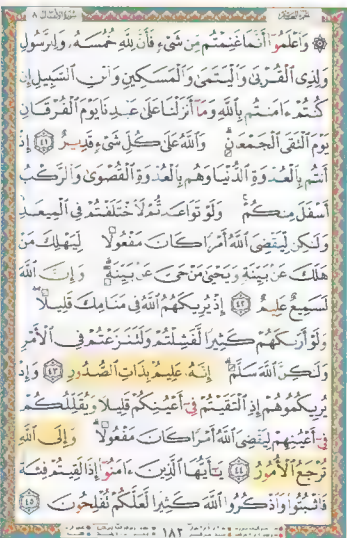 سورة الأنفال ٨
الجزء العاشر
۞ وَٱعْلَمُوٓا۟ أَنَّمَا غَنِمْتُم مِّن شَىْءٍ فَأَنَّ لِلَّهِ خُمُسَهُۥ وَلِلرَّسُولِ
وَلِذِى ٱلْقُرْبَىٰ وَٱلْيَتَـٰمَىٰ وَٱلْمَسَـٰكِينِ وَٱبْنِ ٱلسَّبِيلِ إِن
كُنتُمْ ءَامَنتُم بِٱللَّهِ وَمَآ أَنزَلْنَا عَلَىٰ عَبْدِنَا يَوْمَ ٱلْفُرْقَانِ
يَوْمَ ٱلْتَقَى ٱلْجَمْعَانِ ۗ وَٱللَّهُ عَلَىٰ كُلِّ شَىْءٍ قَدِيرٌ ٤١ إِذْ
أَنتُم بِٱلْعُدْوَةِ ٱلدُّنْيَا وَهُم بِٱلْعُدْوَةِ ٱلْقُصْوَىٰ وَٱلرَّكْبُ
أَسْفَلَ مِنكُمْ ۚ وَلَوْ تَوَاعَدتُّمْ لَٱخْتَلَفْتُمْ فِى ٱلْمِيعَـٰدِ ۙ
وَلَـٰكِن لِّيَقْضِىَ ٱللَّهُ أَمْرًا كَانَ مَفْعُولًا لِّيَهْلِكَ مَنْ
هَلَكَ عَنۢ بَيِّنَةٍ وَيَحْيَىٰ مَنْ حَىَّ عَنۢ بَيِّنَةٍ ۗ وَإِنَّ ٱللَّهَ
لَسَمِيعٌ عَلِيمٌ ٤٢ إِذْ يُرِيكَهُمُ ٱللَّهُ فِى مَنَامِكَ قَلِيلًا ۖ
وَلَوْ أَرَىٰكَهُمْ كَثِيرًا لَّفَشِلْتُمْ وَلَتَنَـٰزَعْتُمْ فِى ٱلْأَمْرِ
وَلَـٰكِنَّ ٱللَّهَ سَلَّمَ ۗ إِنَّهُۥ عَلِيمٌۢ بِذَاتِ ٱلصُّدُورِ ٤٣ وَإِذْ
يُرِيكُمُوهُمْ إِذِ ٱلْتَقَيْتُمْ فِىٓ أَعْيُنِكُمْ قَلِيلًا وَيُقَلِّلُكُمْ
فِىٓ أَعْيُنِهِمْ لِيَقْضِىَ ٱللَّهُ أَمْرًا كَانَ مَفْعُولًا ۗ وَإِلَى ٱللَّهِ
تُرْجَعُ ٱلْأُمُورُ ٤٤ يَـٰٓأَيُّهَا ٱلَّذِينَ ءَامَنُوٓا۟ إِذَا لَقِيتُمْ فِئَةً
فَٱثْبُتُوا۟ وَٱذْكُرُوا۟ ٱللَّهَ كَثِيرًا لَّعَلَّكُمْ تُفْلِحُونَ ٤٥
١٨٢